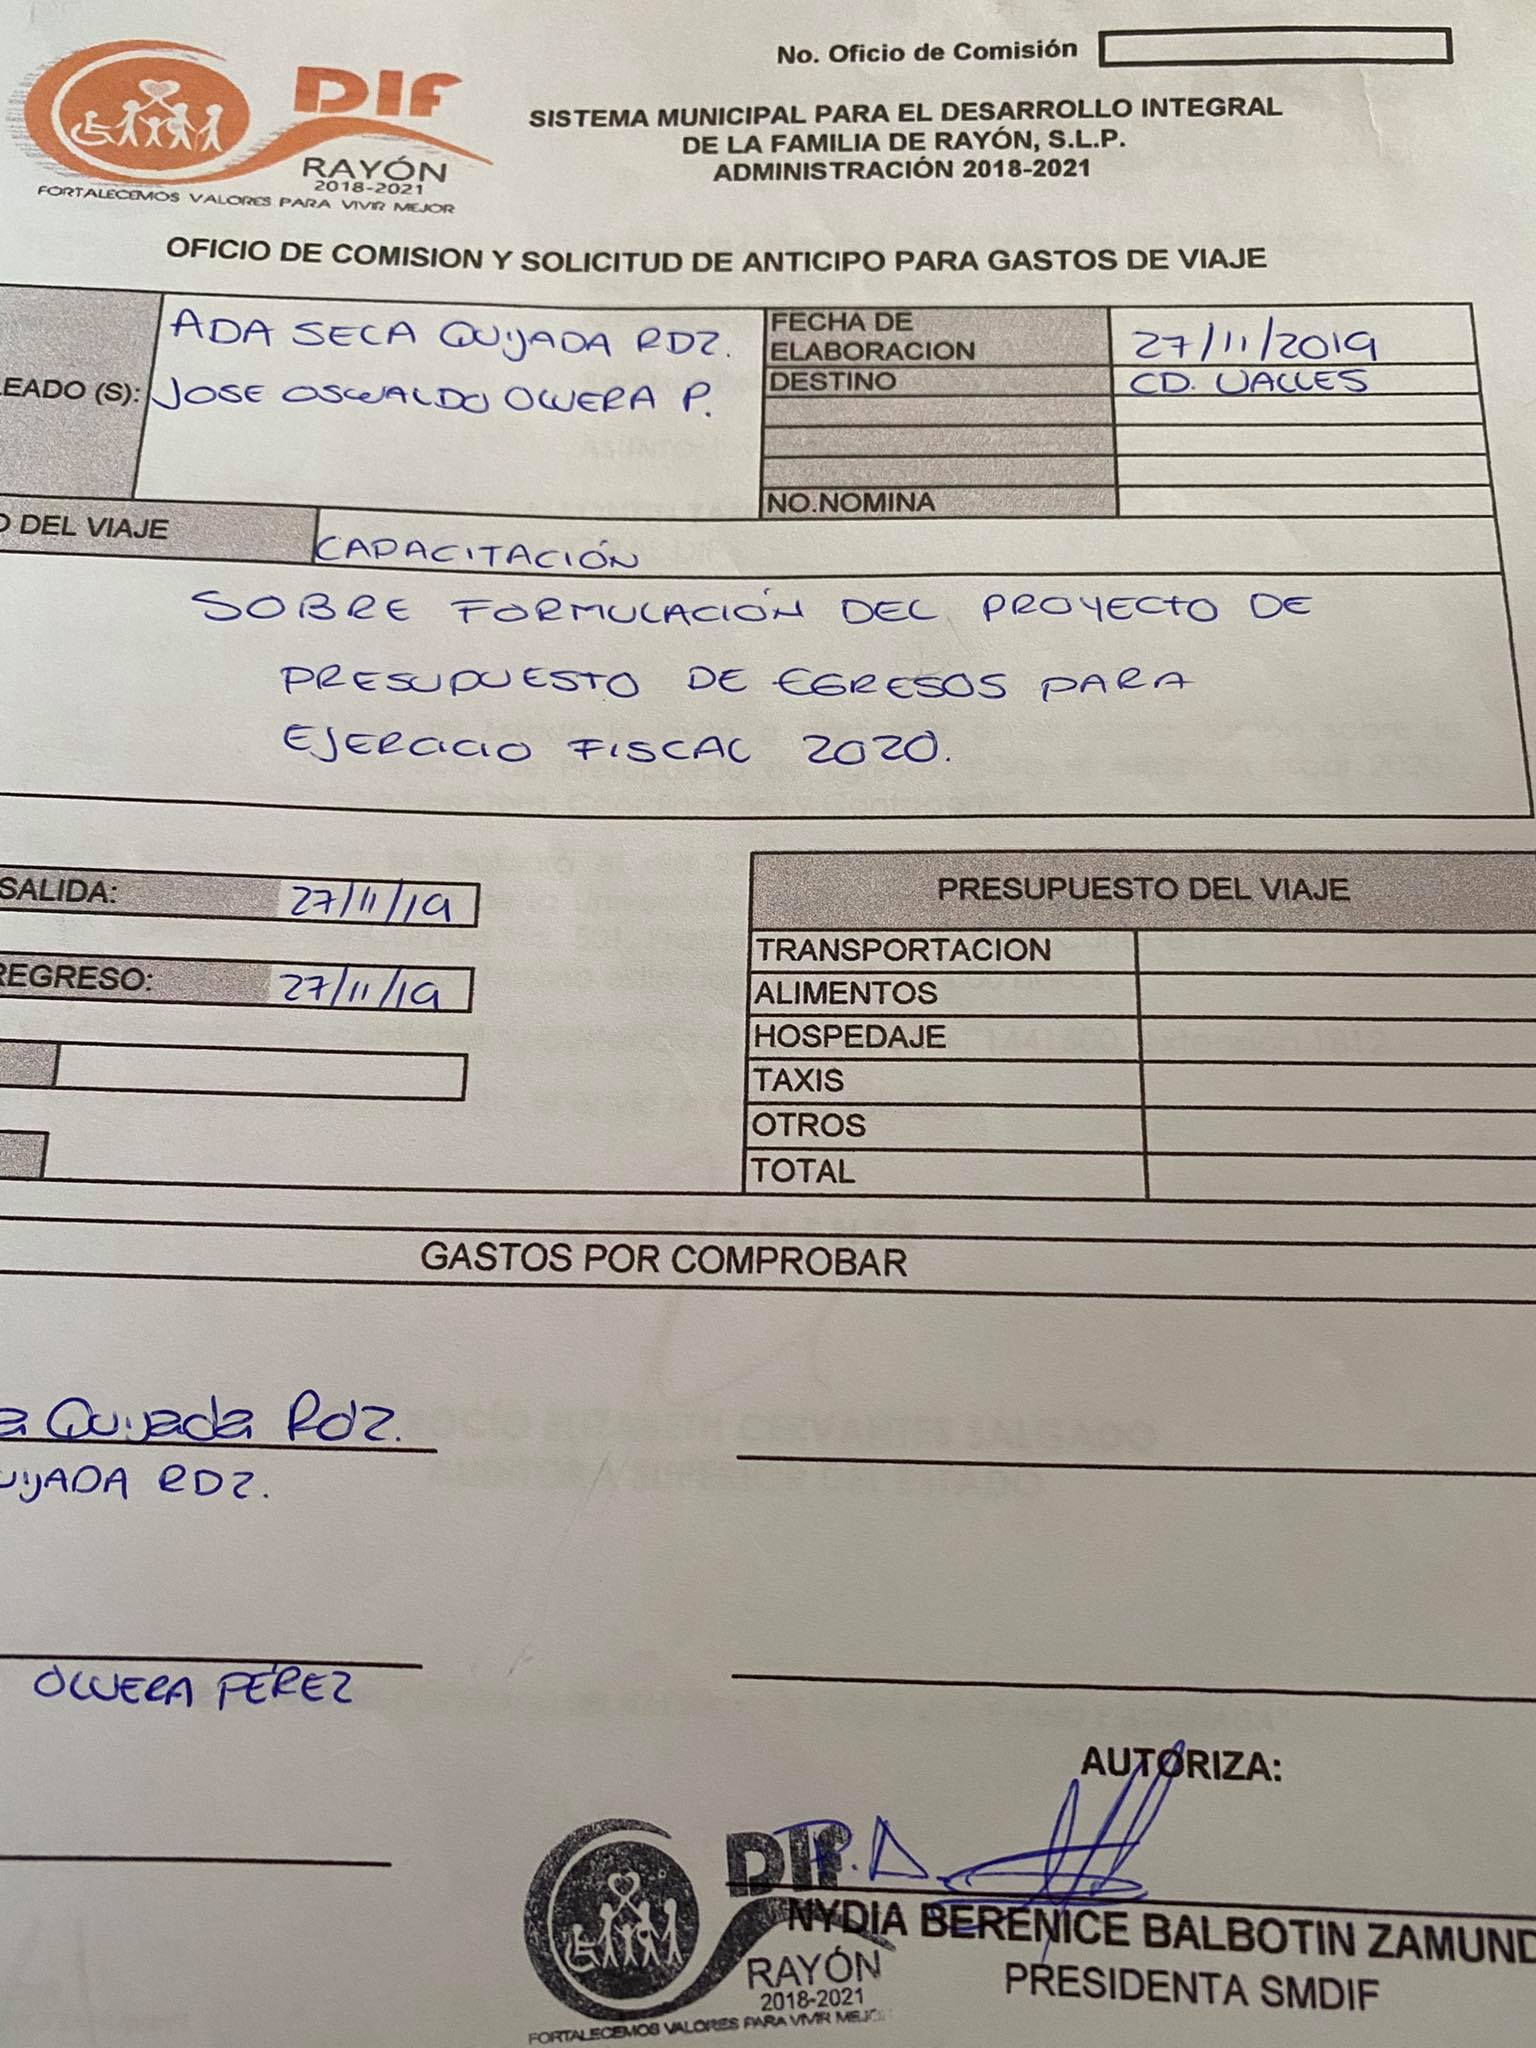 No. Oficio de Comisión
DIF
RAYÓN
2018-2021
FORTALECEMOS VALORES PARA VIVIR MEJOR
SISTEMA MUNICIPAL PARA EL DESARROLLO INTEGRAL
DE LA FAMILIA DE RAYÓN, S.L.P.
ADMINISTRACIÓN 2018-2021
OFICIO DE COMISION Y SOLICITUD DE ANTICIPO PARA GASTOS DE VIAJE
LEADO (S):
ADA SECA QUIJADA RDZ.
JOSE OSWALDO OLVERA P.
FECHA DE
ELABORACION
27/11/2019
DESTINO
CD. VALLES
NO.NOMINA
O DEL VIAJE
CAPACITACIÓN
SOBRE FORMULACIÓN DEL PROYECTO DE
PRESUPUESTO DE EGRESOS PARA
EJERCICIO FISCAL 2020.
SALIDA:
27/11/19
REGRESO:
27/11/19
PRESUPUESTO DEL VIAJE
TRANSPORTACION
ALIMENTOS
HOSPEDAJE
TAXIS
OTROS
TOTAL
GASTOS POR COMPROBAR
a Quijada Rdz.
UIJADA RDZ.
OLVERA PÉREZ
AUTORIZA:
P.A.
NYDIA BERENICE BALBOTIN ZAMUND
PRESIDENTA SMDIF
DIF
RAYÓN
2018-2021
FORTALECEMOS VALORES PARA VIVIR MEJO